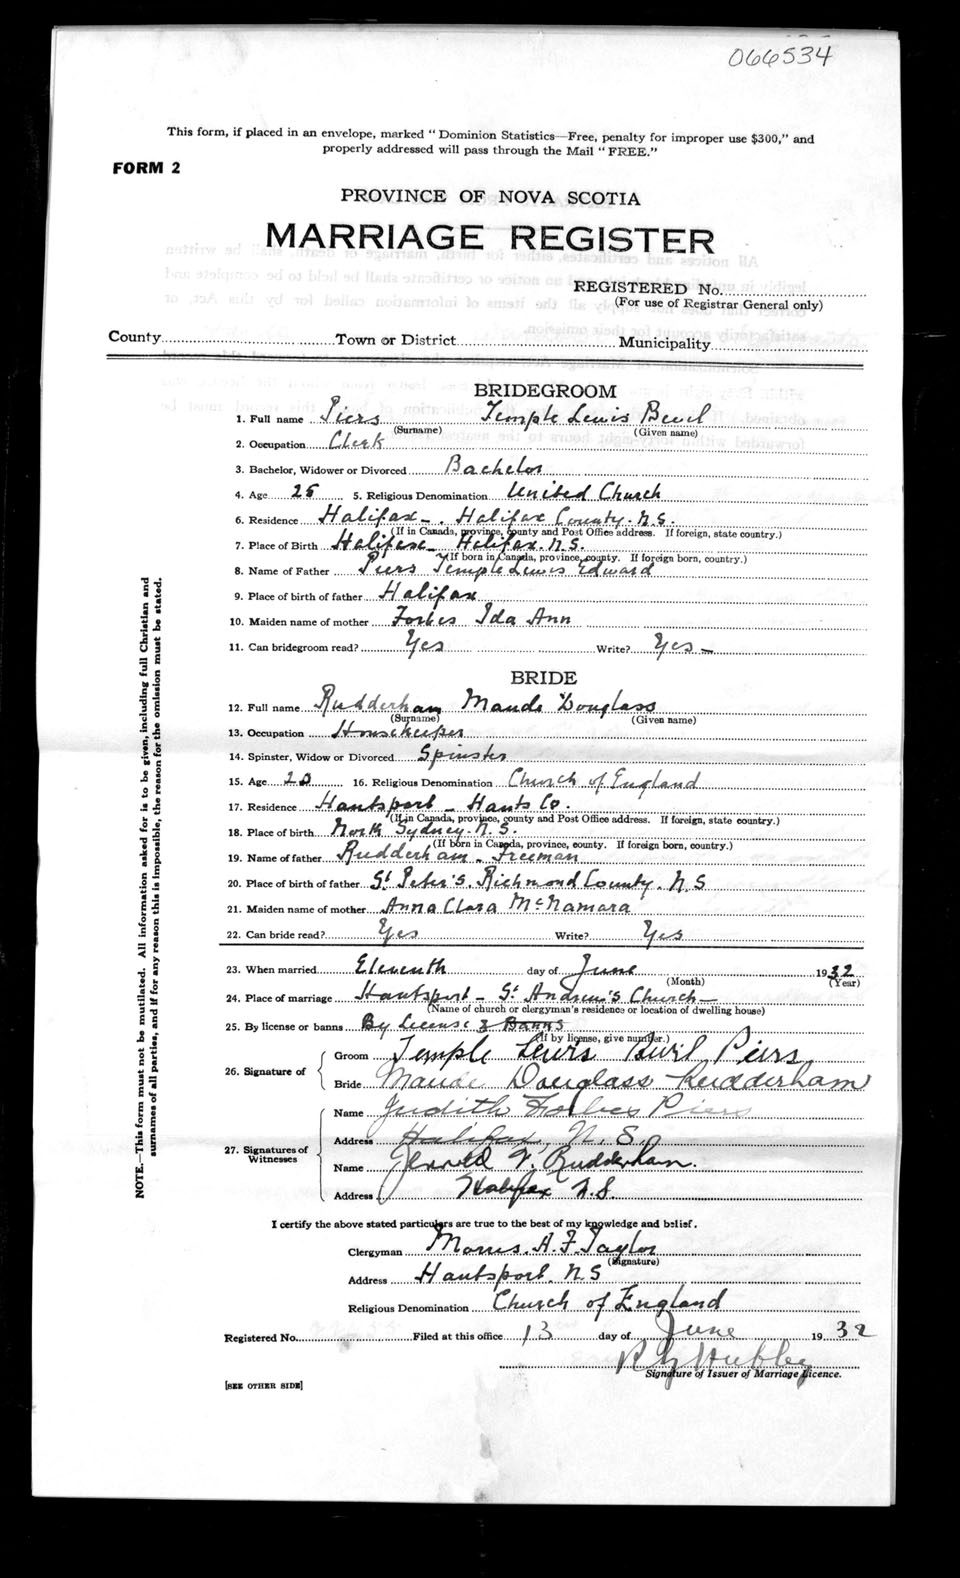 066534
This form, if placed in an envelope, marked "Dominion Statistics—Free, penalty for improper use $300," and
properly addressed will pass through the Mail "FREE."
FORM 2
PROVINCE OF NOVA SCOTIA
MARRIAGE REGISTER
REGISTERED No.
(For use of Registrar General only)
County Town or District Municipality
BRIDEGROOM
1. Full name Piers Temple Lewis
(Surname) (Given name)
2. Occupation Clerk
3. Bachelor, Widower or Divorced Bachelor
4. Age 25 5. Religious Denomination United Church
6. Residence Halifax - Halifax County. N.S.
(If in Canada, province, county and Post Office address. If foreign, state country.)
7. Place of Birth Halifax Halifax. N.S.
(If born in Canada, province, county. If foreign born, country.)
8. Name of Father Piers Temple Lewis Edward
9. Place of birth of father Halifax
10. Maiden name of mother Forbes Ida Ann
11. Can bridegroom read? Yes Write? Yes -
BRIDE
12. Full name Rudderham Maude Douglass
(Surname) (Given name)
13. Occupation Housekeeper
14. Spinster, Widow or Divorced Spinster
15. Age 20 16. Religious Denomination Church of England
17. Residence Hantsport - Hants Co.
(If in Canada, province, county and Post Office address. If foreign, state country.)
18. Place of birth North Sydney. N.S.
(If born in Canada, province, county. If foreign born, country.)
19. Name of father Rudderham - Freeman
20. Place of birth of father St Peter's. Richmond County. N.S
21. Maiden name of mother Anna Clara McNamara
22. Can bride read? Yes Write? Yes
23. When married Eleventh day of June 1932
(Month) (Year)
24. Place of marriage Hantsport - St Andrew's Church -
(Name of church or clergyman's residence or location of dwelling house)
25. By license or banns By License Banns
(If by license, give number.)
26. Signature of
Groom Temple Lewis Piers
Bride Maude Douglass Rudderham
27. Signatures of Witnesses
Name Judith Forbes Piers
Address Halifax, N.S.
Name Rudderham.
Address Halifax N.S.
I certify the above stated particulars are true to the best of my knowledge and belief.
Clergyman Morris. A. F. Taylor
(Signature)
Address Hantsport. N.S
Religious Denomination Church of England
Registered No. Filed at this office 13 day of June 1932
Hubley
Signature of Issuer of Marriage Licence.
[SEE OTHER SIDE]
NOTE.—This form must not be mutilated. All information asked for is to be given, including full Christian and
surnames of all parties, and if for any reason this is impossible, the reason for the omission must be stated.